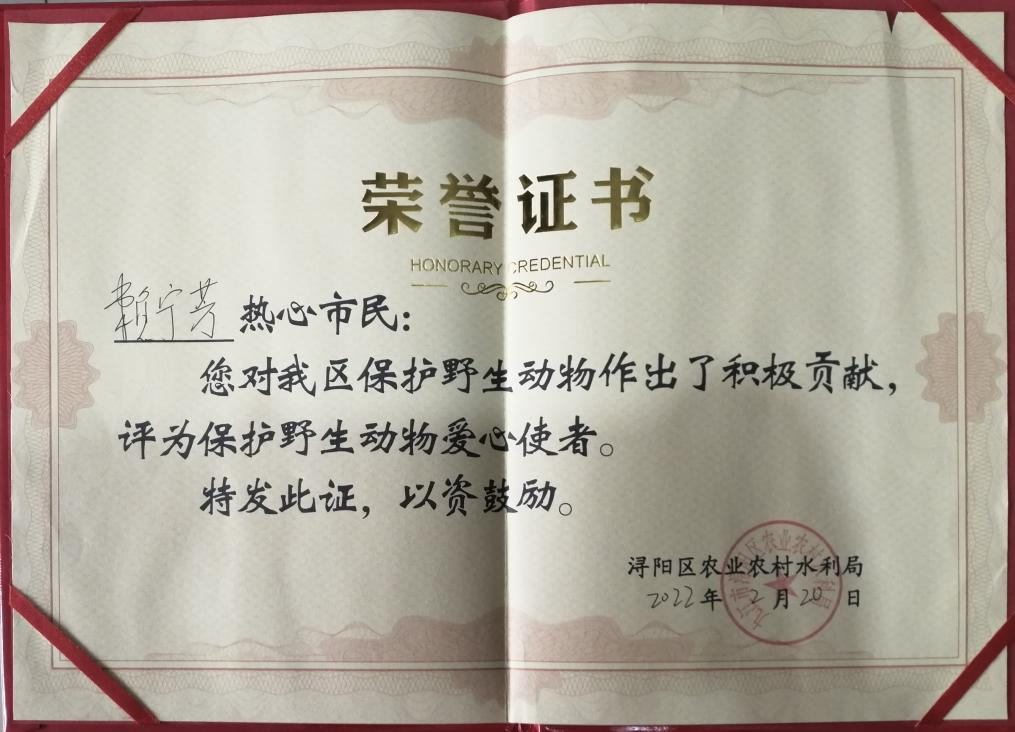 荣誉证书
HONORARY CREDENTIAL
赖宁芳 热心市民：
您对我区保护野生动物作出了积极贡献，
评为保护野生动物爱心使者。
特发此证，以资鼓励。
浔阳区农业农村水利局
2022年2月20日
九江市浔阳区农业农村水利局